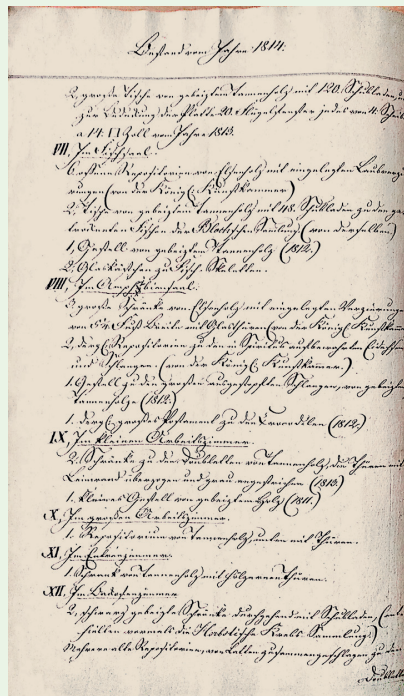 Bestand vom Jahre 1814.
2, große Tische von gebeiztem Tannenholz mit 120. Schubladen
zur Bedeckung der Platte 20. Flügelfenster jedes von 4. Scheiben
a 14. 11 Zoll vom Jahre 1813.
VII, Im Fischsaal.
6 offene Repositorien von Elsenholz mit eingelegten Laubverzie
rungen (von der Königl. Kunstkammer)
2, Tische von gebeiztem Tannenholz mit 48. Schubladen zu den ge
trockneten Fischen der Blochschen Samlung (von derselben)
1, Gestell von gebeiztem Tannenholz (1812.)
2, Glaskästchen zu Fisch-Skeletten.
VIII, Im Amphibiensaal.
3 große Schränke von Elsenholz mit eingelegten Verzierungen
von 5¼ Fuß Breite mit Glasthüren (von der Königl. Kunstkam
2, dergl. Repositorien zu den in Spiritus aufbewahrten Eidechsen
und Schlangen. (von der Königl. Kunstkammer.)
1. Gestell zu den großen ausgestopften Schlangen, von gebeiztem
Tannenholze (1812.)
1. dergl. großes Postament zu den Crocodilen (1812.)
IX, Im kleinen Arbeitszimmer.
2. Schränke zu den Doubletten von Tannenholz, die Thüren mit
Leinwand überzogen und grau angestrichen (1813.)
1 kleines Gestell von gebeiztem Holz (1811.)
X, Im großen Arbeitszimmer.
1. Repositorium von Tannenholz unten mit Thüren.
XI, Im Entreezimmer.
1. Schrank von Tannenholz mit hölzernen Thüren.
XII, Im
2, schwarz gebeizte Schränke durchgehend mit Schubladen, (ent
hielten vormals die Herbstische Krebs-Sammlung.)
Mehrere alte Repositorien, von Latten zusammengeschlagen zu den
Doublette